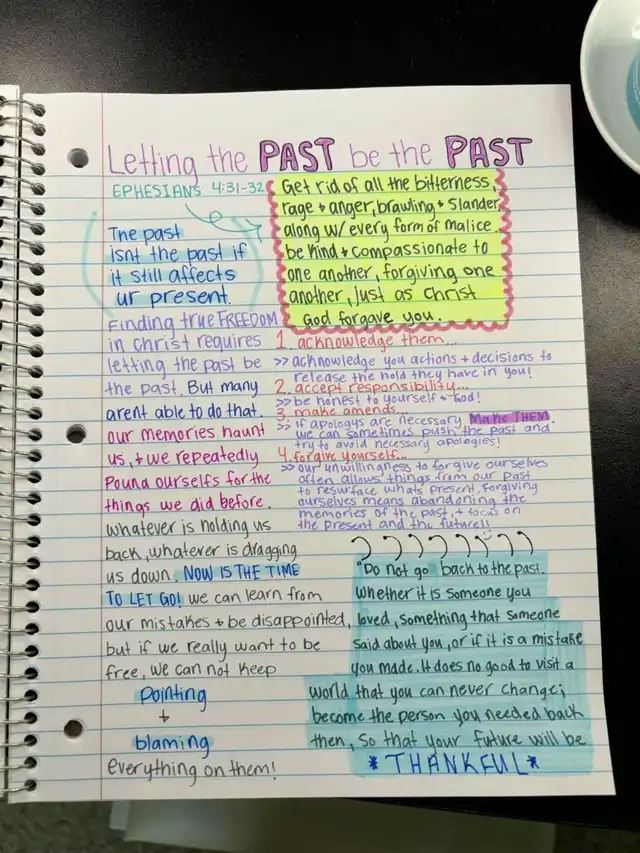 Letting the PAST be the PAST
EPHESIANS 4:31-32
Get rid of all the bitterness,
rage + anger, brawling + slander
along w/ every form of malice.
be kind + compassionate to
one another, forgiving one
another, just as Christ
God forgave you.
The past
isnt the past if
it still affects
ur present.
Finding true FREEDOM
in christ requires
letting the past be
the past. But many
arent able to do that.
our memories haunt
us, + we repeatedly
pound ourselfs for the
things we did before.
whatever is holding us
back, whatever is dragging
us down. NOW IS THE TIME
TO LET GO! we can learn from
our mistakes + be disappointed,
but if we really want to be
free, we can not keep
pointing
+
blaming
everything on them!
1. acknowledge them...
>> acknowledge you actions + decisions to
release the hold they have in you!
2. accept responsibility...
>> be honest to yourself + God!
3. make amends...
>> if apologys are necessary MAKE THEM.
we can sometimes push the past and
try to avoid necessary apologies!
4. forgive yourself...
>> our unwillingness to forgive ourselves
often allows things from our past
to resurface whats present. Forgiving
ourselves means abandoning the
memories of the past, + focus on
the present and the future!!
"Do not go back to the past.
whether it is someone you
loved, something that someone
said about you, or if it is a mistake
you made. It does no good to visit a
world that you can never change;
become the person you needed back
then, so that your future will be
*THANKFUL*